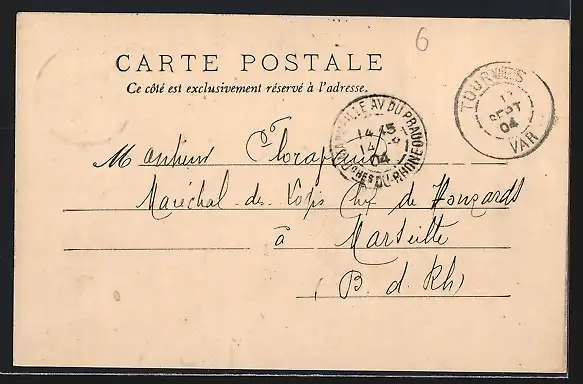 6
CARTE POSTALE
Ce côté est exclusivement réservé à l'adresse.
TOURVES
SEPT
04
VAR
MARSEILLE AV DU PRADO
14 15
14
04
BCHES DU RHÔNE
Monsieur
Maréchal des Logis de Houzards
à
Marseille
(B. d. Rh)